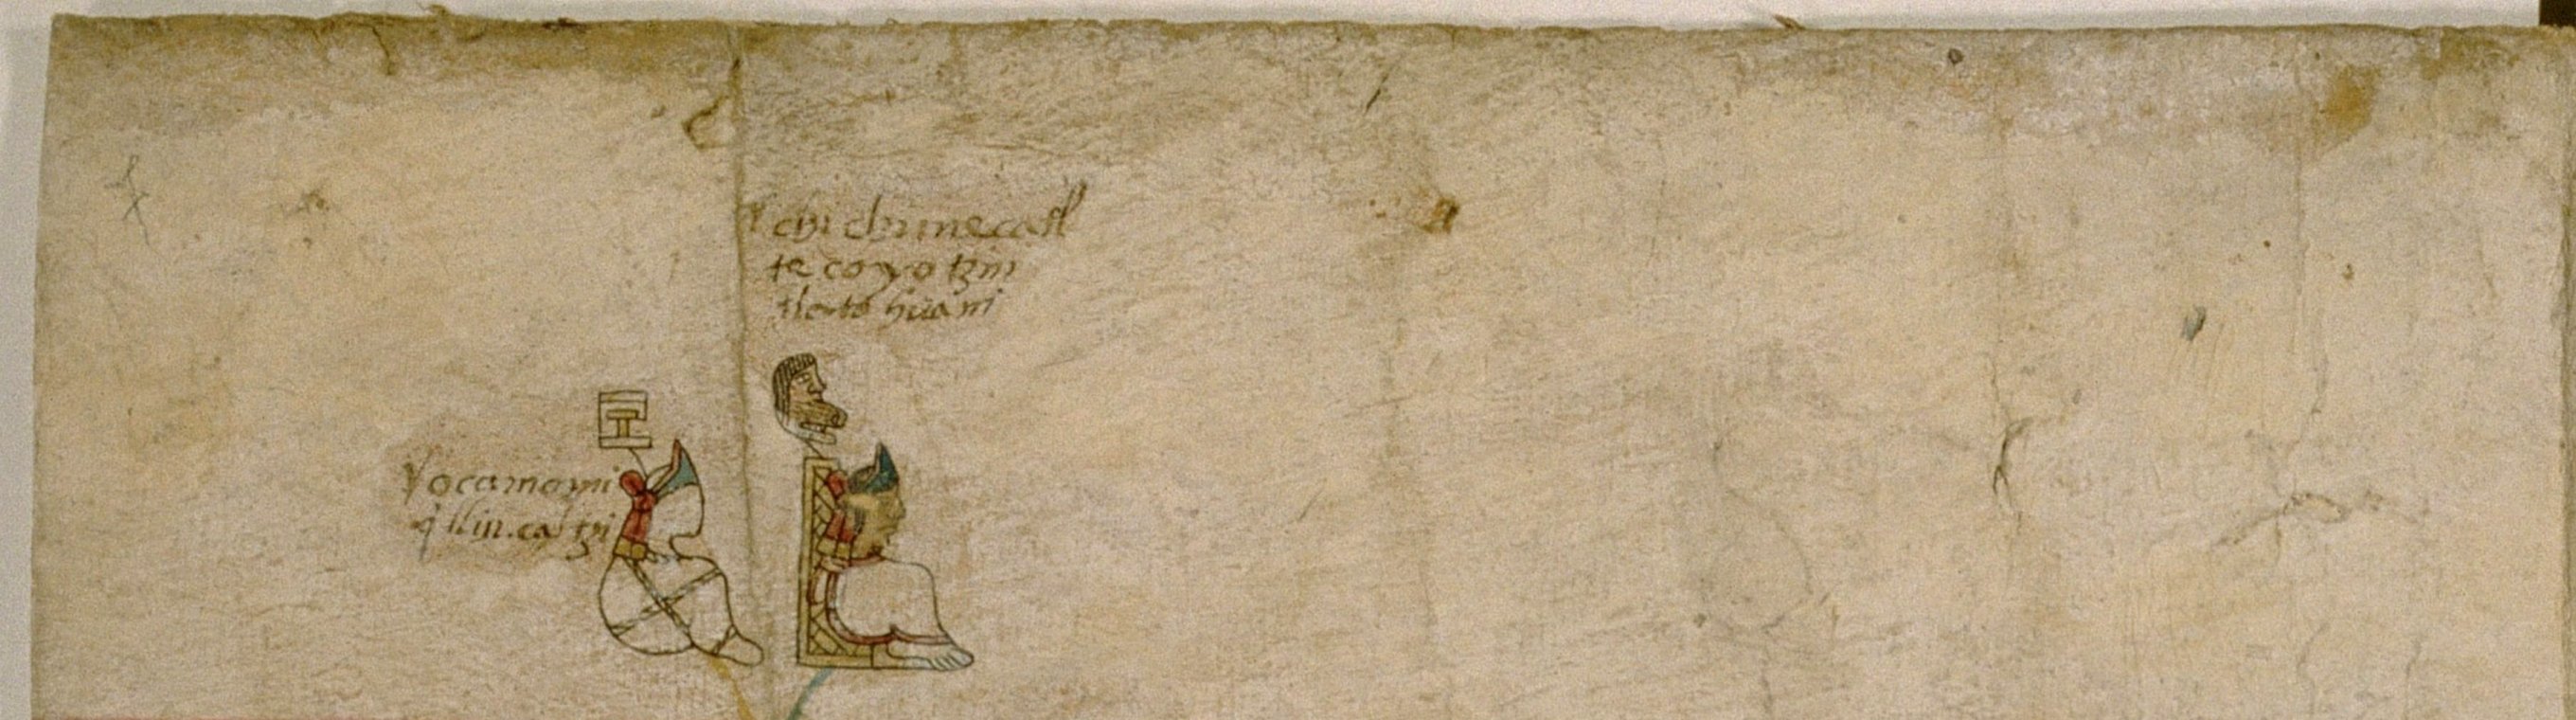 chichimecatl
tecoyotzin
tlatohuani
yocamomi
qllin.catzi